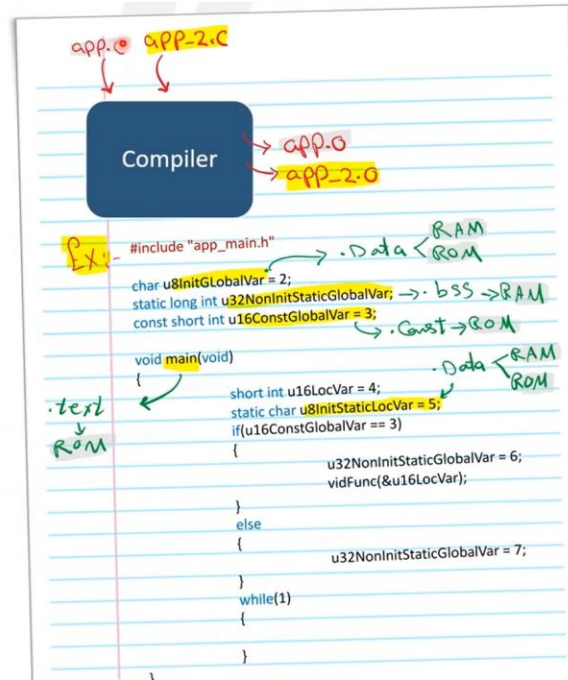 app.c app_2.c
Compiler
app.o
app_2.o
Ex:-
#include "app_main.h"
.Data RAM
ROM
char u8InitGLobalVar = 2;
static long int u32NonInitStaticGlobalVar; .bss RAM
const short int u16ConstGlobalVar = 3;
.Const ROM
void main(void)
.Data RAM
ROM
{
.text
ROM
short int u16LocVar = 4;
static char u8InitStaticLocVar = 5;
if(u16ConstGlobalVar == 3)
{
u32NonInitStaticGlobalVar = 6;
vidFunc(&u16LocVar);
}
else
{
u32NonInitStaticGlobalVar = 7;
}
while(1)
{
}
}